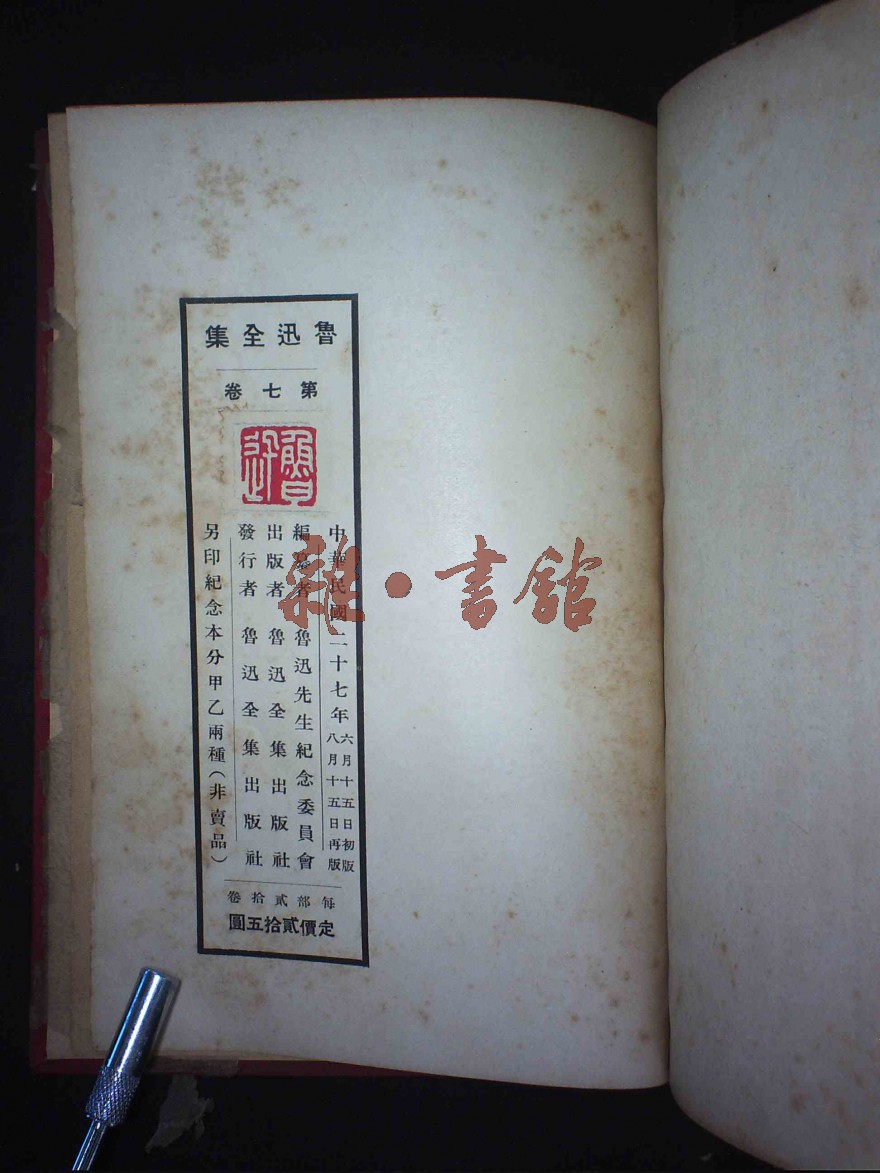 魯迅全集
第七卷
魯迅
中華民國二十七年六月十五日初版
八月十五日再版
編纂者 魯迅先生紀念委員會
出版者 魯迅全集出版社
發行者 魯迅全集出版社
另印紀念本分甲乙兩種(非賣品)
每部貳拾卷
定價貳拾五圓
雜·書館